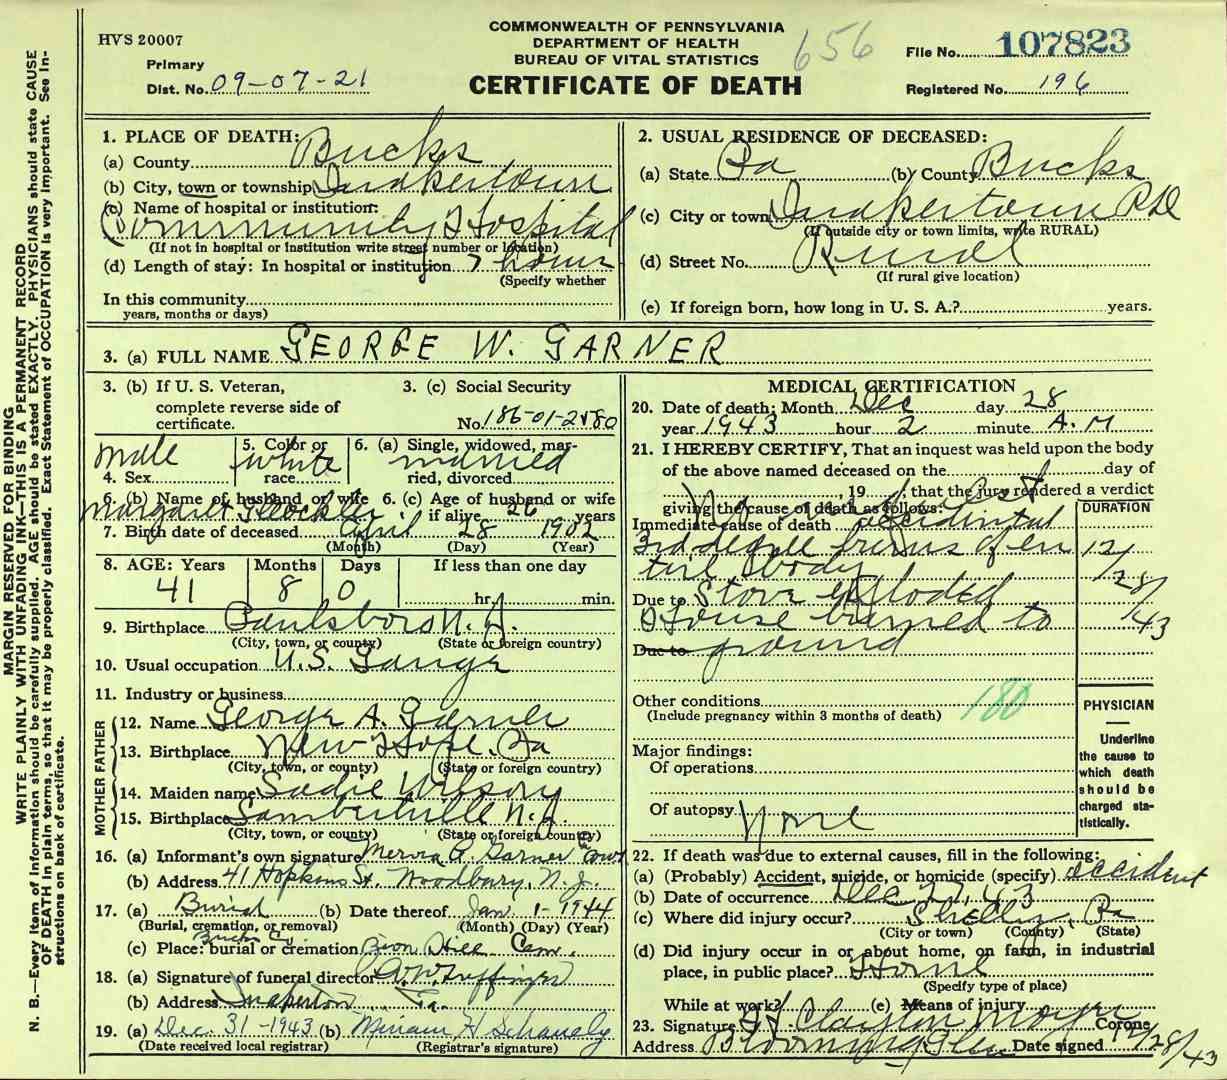 HVS 20007
COMMONWEALTH OF PENNSYLVANIA
DEPARTMENT OF HEALTH
BUREAU OF VITAL STATISTICS
CERTIFICATE OF DEATH
656
Primary
Dist. No. 09-07-21
File No. 107823
Registered No. 196
MARGIN RESERVED FOR BINDING
WRITE PLAINLY WITH UNFADING INK—THIS IS A PERMANENT RECORD
N. B.—Every item of information should be carefully supplied. AGE should be stated EXACTLY. PHYSICIANS should state CAUSE
OF DEATH in plain terms, so that it may be properly classified. Exact Statement of OCCUPATION is very important. See In-
structions on back of certificate.
1. PLACE OF DEATH:
(a) County Bucks
(b) City, town or township Quakertown
(c) Name of hospital or institution:
Community Hospital
(If not in hospital or institution write street number or location)
(d) Length of stay: In hospital or institution 7 hours
(Specify whether
In this community
years, months or days)
2. USUAL RESIDENCE OF DECEASED:
(a) State Pa (b) County Bucks
(c) City or town Quakertown RD
(If outside city or town limits, write RURAL)
(d) Street No. Rural
(If rural give location)
(e) If foreign born, how long in U. S. A.? years.
3. (a) FULL NAME GEORGE W. GARNER
3. (b) If U. S. Veteran,
complete reverse side of
certificate.
3. (c) Social Security
No. 186-01-2580
4. Sex male
5. Color or
race white
6. (a) Single, widowed, mar-
ried, divorced married
6. (b) Name of husband or wife Margaret
6. (c) Age of husband or wife
if alive 26 years
7. Birth date of deceased April 28 1902
(Month) (Day) (Year)
8. AGE: Years Months Days If less than one day
41 8 0 hr. min.
9. Birthplace Paulsboro N.J.
(City, town, or county) (State or foreign country)
10. Usual occupation U.S. Gauge
11. Industry or business
FATHER
12. Name George A. Garner
13. Birthplace New Hope, Pa
(City, town, or county) (State or foreign country)
MOTHER
14. Maiden name Sadie Wilson
15. Birthplace Lambertville N.J.
(City, town, or county) (State or foreign country)
16. (a) Informant's own signature Garner
(b) Address 41 Hopkins St. Woodbury, N.J.
17. (a) Burial (b) Date thereof Jan. 1-1944
(Burial, cremation, or removal) (Month) (Day) (Year)
Bucks Co
(c) Place: burial or cremation Hill Cem.
18. (a) Signature of funeral director
(b) Address Quakertown Pa.
19. (a) Dec. 31-1943 (b) Miriam H
(Date received local registrar) (Registrar's signature)
MEDICAL CERTIFICATION
20. Date of death: Month Dec day 28
year 1943 hour 2 minute A.M
21. I HEREBY CERTIFY, That an inquest was held upon the body
of the above named deceased on the day of
19 ; that the jury rendered a verdict
giving the cause of death as follows:
DURATION
Immediate cause of death accidental
3rd degree burns of en
tire body
12/28/43
Due to Stove exploded
House burned to
Due to ground
Other conditions
(Include pregnancy within 3 months of death)
180
Major findings:
Of operations
Of autopsy None
PHYSICIAN
—
Underline
the cause to
which death
should be
charged sta-
tistically.
22. If death was due to external causes, fill in the following:
(a) (Probably) Accident, suicide, or homicide (specify) accident
(b) Date of occurrence Dec 27, 43
(c) Where did injury occur? Shelly, Pa
(City or town) (County) (State)
(d) Did injury occur in or about home, on farm, in industrial
place, in public place? Home
(Specify type of place)
While at work? (e) Means of injury
23. Signature Clayton Moyer Corone
Address Blooming Glen Date signed 12/28/43